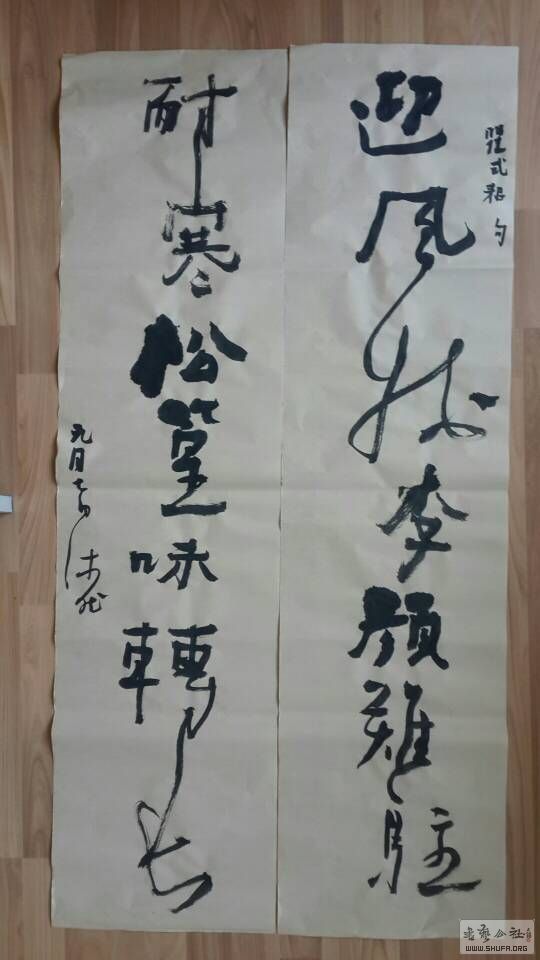 迎風桃李顔難駐
句
耐寒松篁味轉長
九月
书艺公社
WWW.SHUFA.ORG